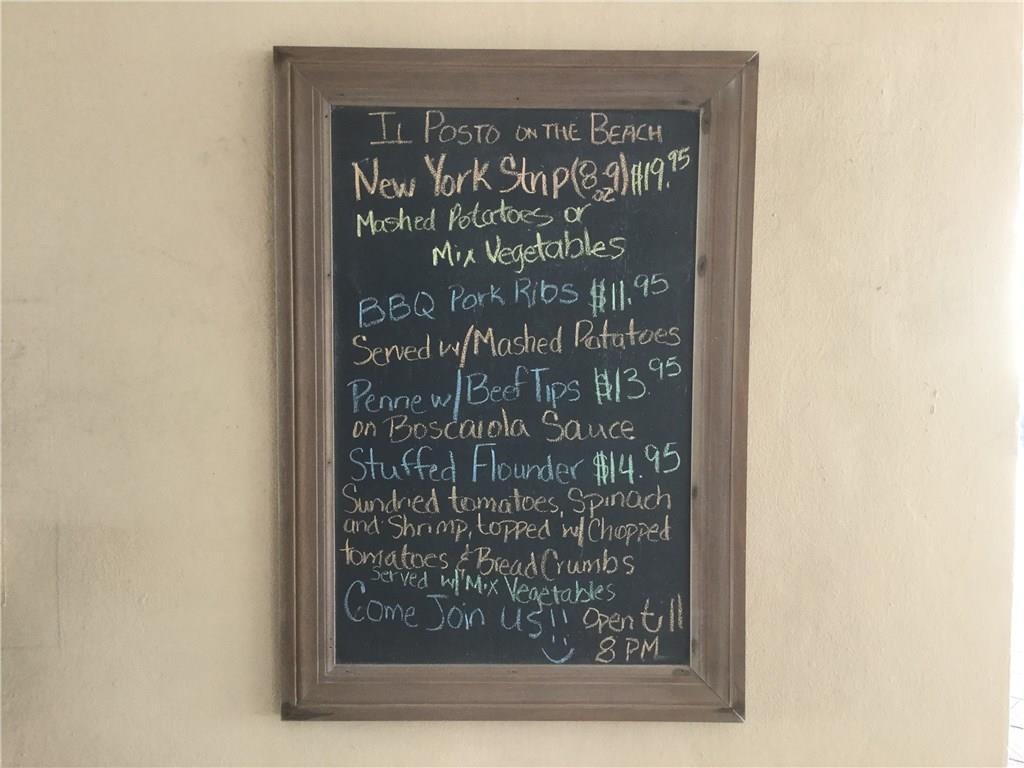 IL POSTO ON THE BEACH
New York Strip (8-9)oz $19.95
Mashed Potatoes or
Mix Vegetables
BBQ Pork Ribs $11.95
Served w/Mashed Potatoes
Penne w/Beef Tips $13.95
on Boscaiola Sauce
Stuffed Flounder $14.95
Sundried tomatoes, Spinach
and Shrimp, topped w/Chopped
tomatoes & Bread Crumbs
Served w/Mix Vegetables
Come Join us!! Open till
8 PM